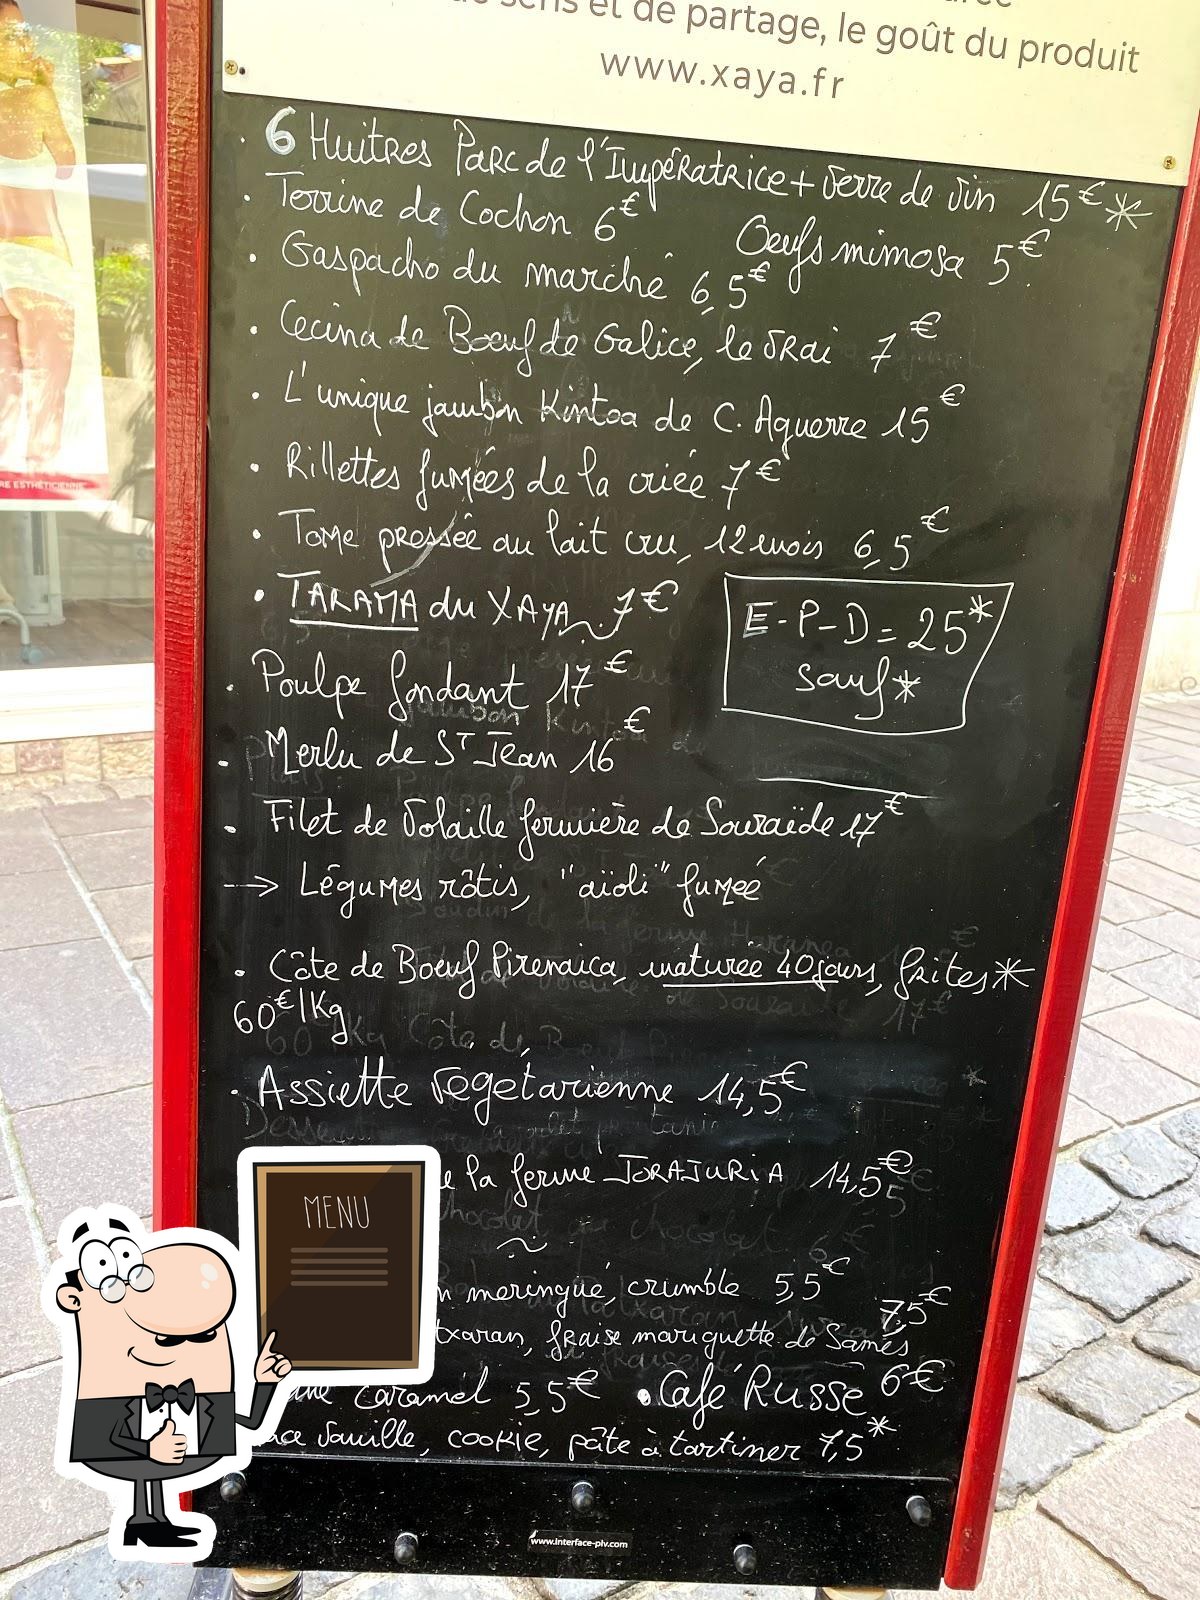 et de partage, le goût du produit
www.xaya.fr
. 6 Huitres Parc de l'Impératrice + verre de vin 15€*
. Terrine de Cochon 6€ Oeufs mimosa 5€
. Gaspacho du marché 6,5€
. Cecina de Boeuf de Galice, le vrai 7€
. L'unique jambon Kintoa de C. Aguerre 15€
. Rillettes fumées de la criée 7€
. Tome pressée au lait cru, 12 mois 6,5€
. TARAMA du XAYA 7€
E-P-D = 25*
sauf*
. Poulpe fondant 17€
. Merlu de ST Jean 16€
. Filet de Volaille fermière de Souraïde 17€
→ Légumes rôtis, "aïoli" fumée
. Côte de Boeuf Pirenaica, maturée 40 jours, frites*
60€/Kg
. Assiette végétarienne 14,5€
la ferme JORAJURIA 14,5€
meringué, crumble 5,5€
7,5€
txaran, fraise mariguette de Samés
Caramel 5,5€ . Café Russe 6€
vanille, cookie, pâte à tartiner 7,5*
MENU
RE ESTHÉTICIENNE
www.interface-plv.com